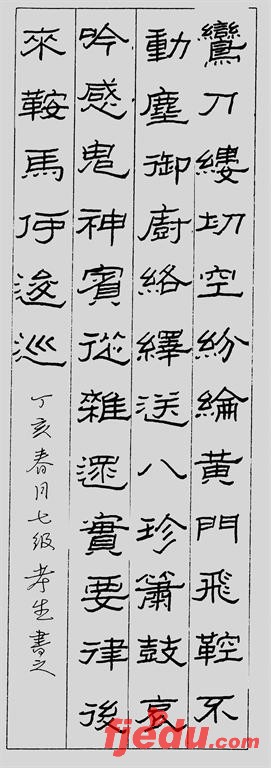 鸞刀縷切空紛綸黃門飛鞚不
動塵御廚絡繹送八珍簫鼓哀
吟感鬼神賓從雜遝實要律後
來鞍馬何逡巡
丁亥春月七級孝生書之
fjedu.com